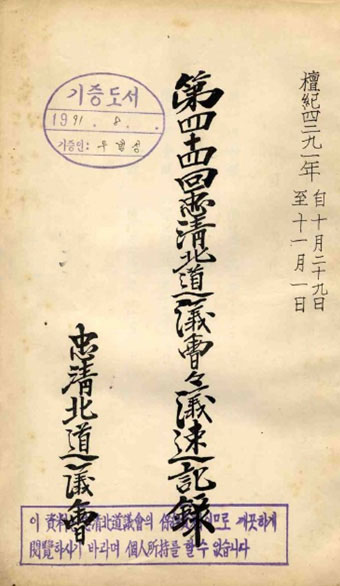 檀紀四二九一年
自十月二十九日
至十一月一日
第四十四回忠清北道議會々議速記錄
忠清北道議會
기증도서
1991. 8. .
기증인:
이 資料 淸北道議會의 므로 깨끗하게
閱覽하시기 바라며 個人所持를 할 수 없습니다